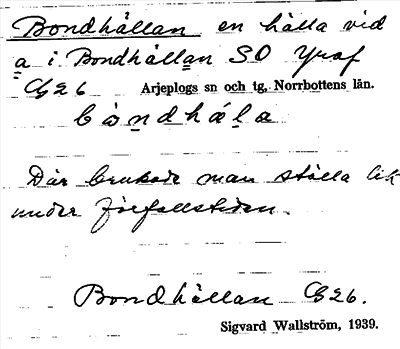 Bondhällan en hälla vid
a i Bondhällan SO Yraf
G26 Arjeplogs sn och tg, Norrbottens län.
bòndhäla
Där brukade man ställa lik
under förfallstiden.
Bondhällan G26.
Sigvard Wallström, 1939.